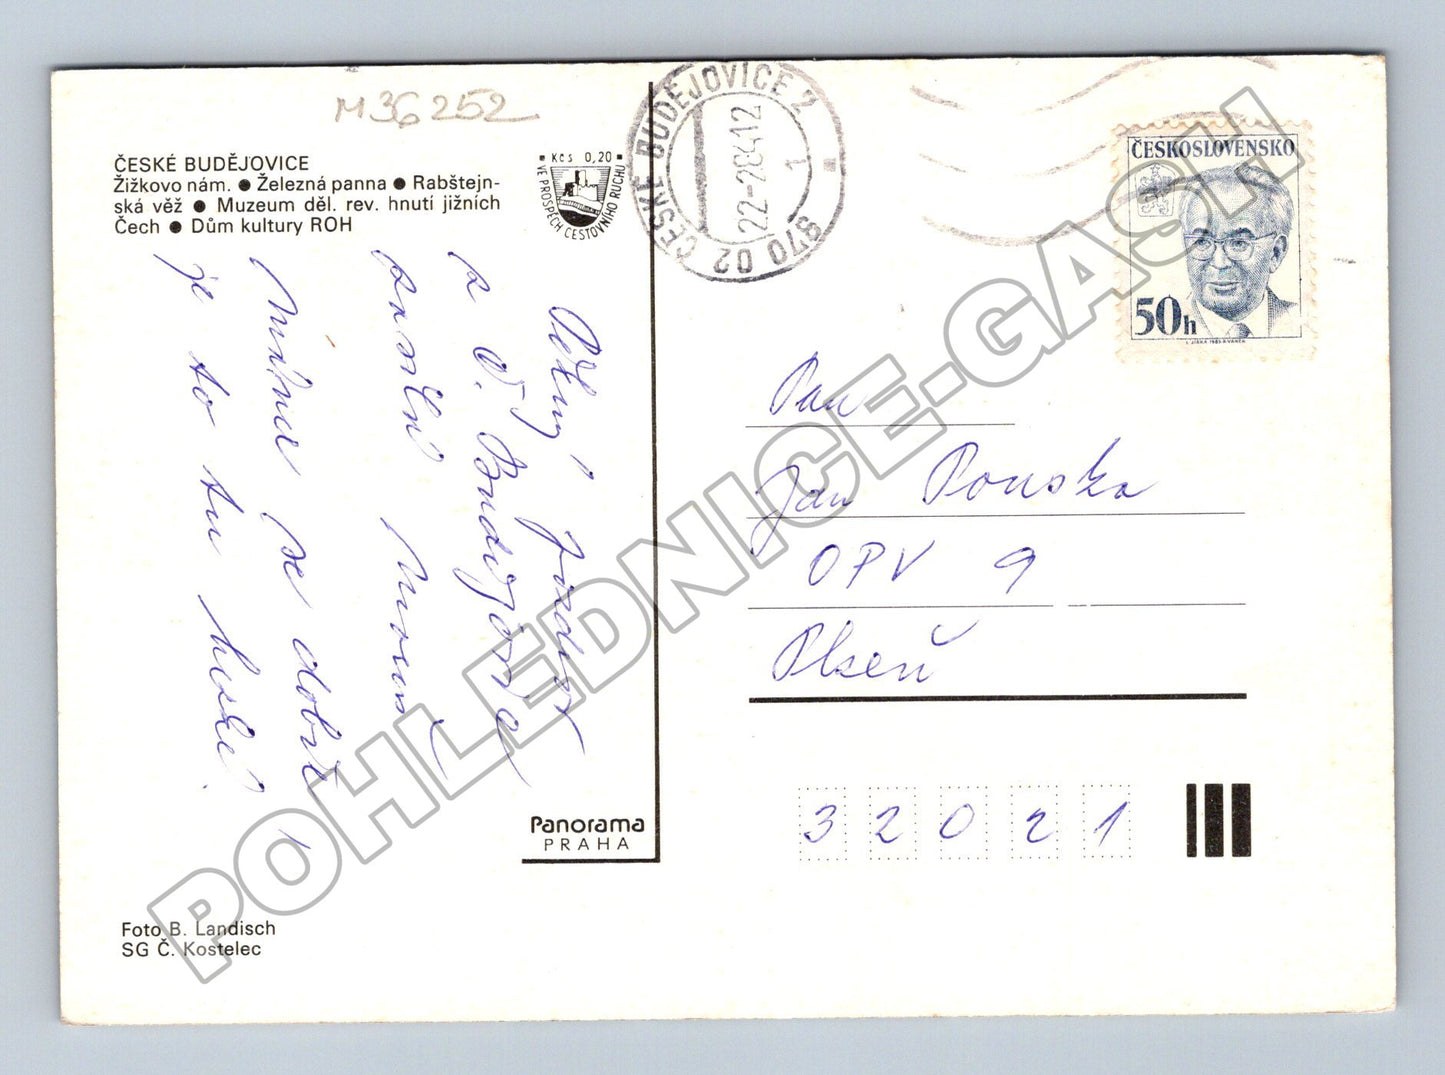 M36252
ČESKÉ BUDĚJOVICE
Žižkovo nám. ● Železná panna ● Rabštejn-
ská věž ● Muzeum děl. rev. hnutí jižních
Čech ● Dům kultury ROH
Kčs 0,20
VE PROSPĚCH CESTOVNÍHO RUCHU
370 02 ČESKÉ BUDĚJOVICE 2
22-284 12
1
ČESKOSLOVENSKO
50h
Pěkný pozdrav
z Č. Budějovic
zasílá
Máme se dobře
je to tu hezké.
Pan
Jan Pouska
OPV 9
Plzeň
32021
Panorama
PRAHA
Foto B. Landisch
SG Č. Kostelec
POHLEDNICE-GASH